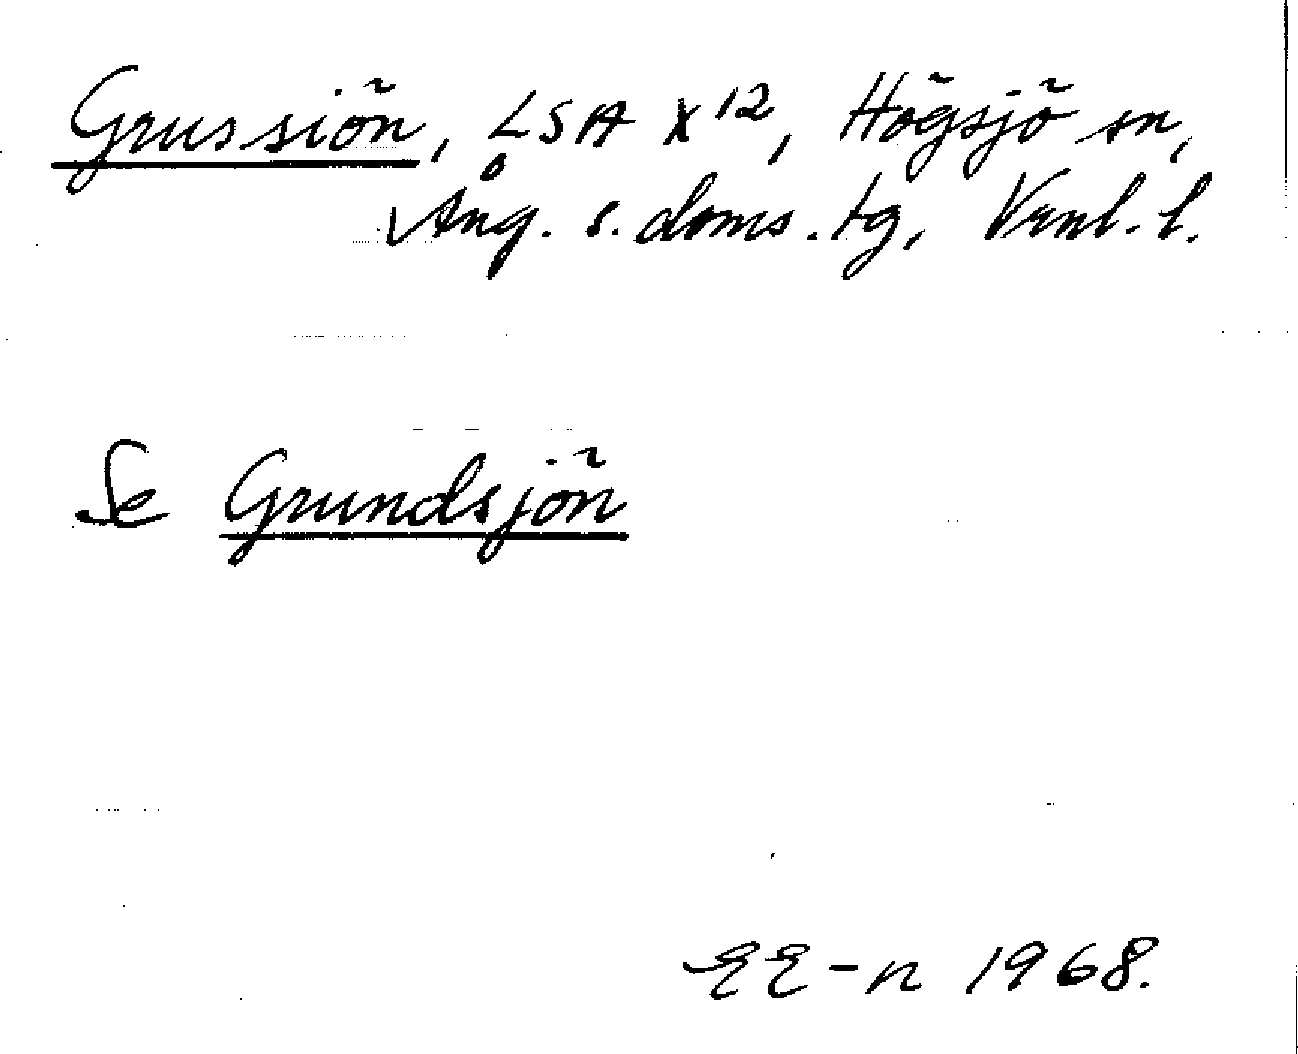 Grussiön, LSA X12, Högsjö sn,
Ång. s. doms.tg, Vrnl. l.
Se Grundsjön
EE-n 1968.